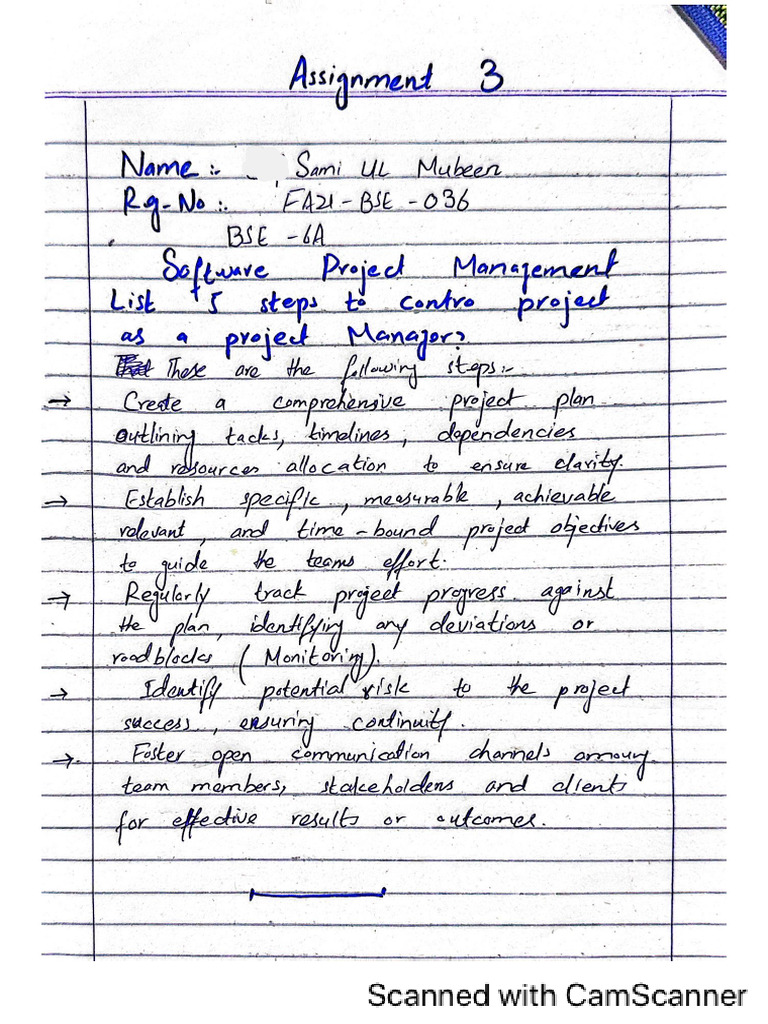 Assignment 3
Name :- Sami UL Mubeen
Rg-No :. FA21-BSE-036
BSE-6A
Software Project Management
List 5 steps to contro project
as a project Manajor?
These are the following steps:-
→ Create a comprehensive project plan
outlining tacks, timelines, dependencies
and resources allocation to ensure clarity.
→ Establish specific, measurable, achievable
relevant, and time-bound project objectives
to guide the teams effort.
→ Regularly track project progress against
the plan, identifying any deviations or
roadblocks (Monitoring).
→ Identify potential risk to the project
success, ensuring continuity.
→ Foster open communication channels amoung
team members, stakeholders and clients
for effective results or outcomes.
Scanned with CamScanner